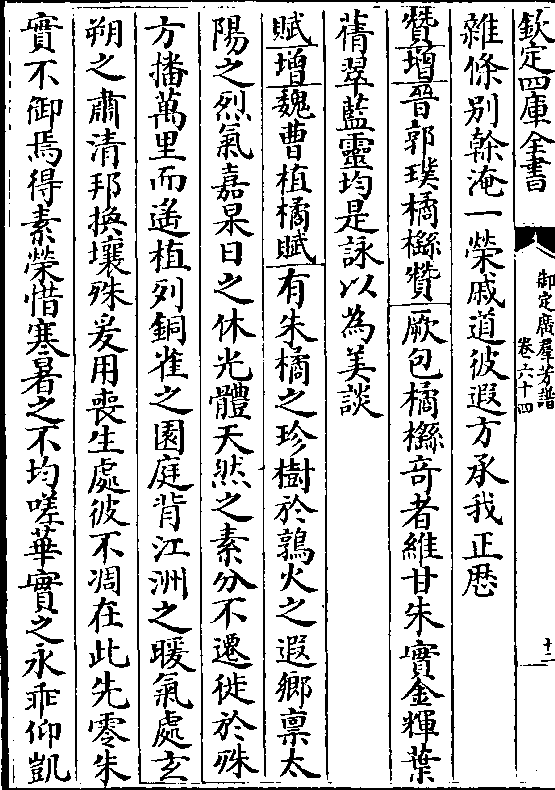 欽定四庫全書
御定廣羣芳譜
卷六十四
十二
雜條別幹淹一榮戚道彼遐方承我正厯
贊增晉郭璞橘櫾贊厥包橘櫾竒者維甘朱實金輝葉
蒨翠藍靈均是詠以為美談
賦增魏曹植橘賦有朱橘之珍樹於鶉火之遐鄉禀太
陽之烈氣嘉杲日之休光體天然之素分不遷徙於殊
方播萬里而遥植列銅雀之園庭背江洲之暖氣處玄
朔之肅清邦換壤殊爰用喪生處彼不凋在此先零朱
實不御焉得素榮惜寒暑之不均嗟華實之永乖仰凱